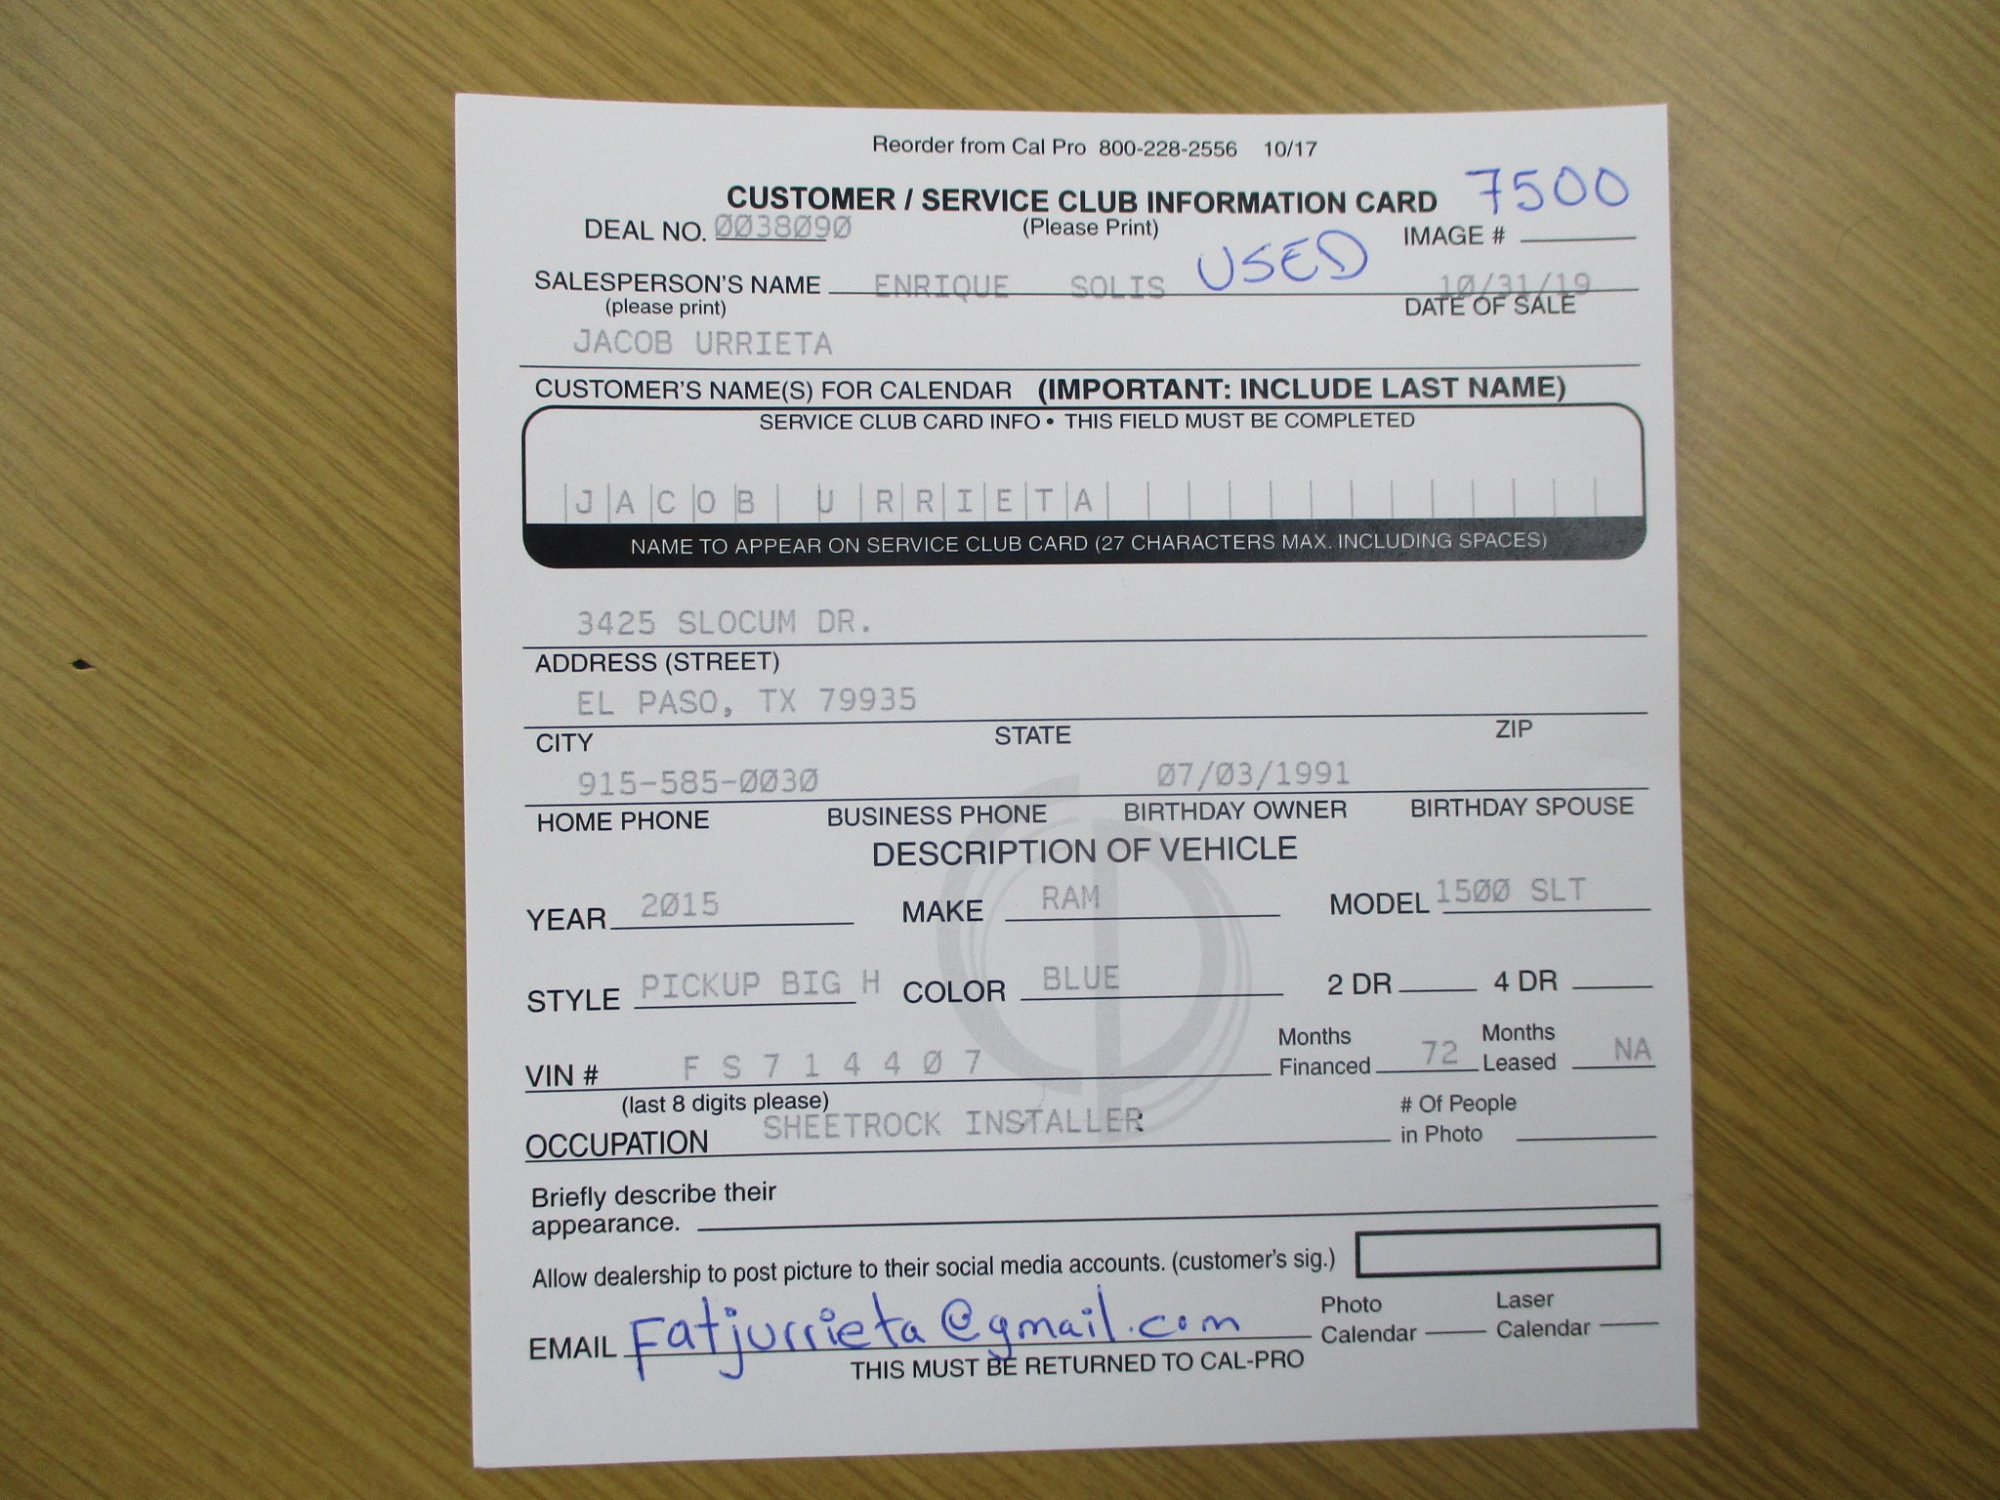 Reorder from Cal Pro 800-228-2556 10/17
CUSTOMER / SERVICE CLUB INFORMATION CARD 7500
DEAL NO. 0038090 (Please Print) IMAGE #
SALESPERSON'S NAME ENRIQUE SOLIS USED 10/31/19
(please print) DATE OF SALE
JACOB URRIETA
CUSTOMER'S NAME(S) FOR CALENDAR (IMPORTANT: INCLUDE LAST NAME)
SERVICE CLUB CARD INFO • THIS FIELD MUST BE COMPLETED
JACOB URRIETA
NAME TO APPEAR ON SERVICE CLUB CARD (27 CHARACTERS MAX. INCLUDING SPACES)
3425 SLOCUM DR.
ADDRESS (STREET)
EL PASO, TX 79935
CITY STATE ZIP
915-585-0030 07/03/1991
HOME PHONE BUSINESS PHONE BIRTHDAY OWNER BIRTHDAY SPOUSE
DESCRIPTION OF VEHICLE
YEAR 2015 MAKE RAM MODEL 1500 SLT
STYLE PICKUP BIG H COLOR BLUE 2 DR 4 DR
VIN # F S 7 1 4 4 0 7 Months Financed 72 Months Leased NA
(last 8 digits please)
OCCUPATION SHEETROCK INSTALLER # Of People in Photo
Briefly describe their
appearance.
Allow dealership to post picture to their social media accounts. (customer's sig.)
EMAIL Fatjurrieta@gmail.com Photo Calendar Laser Calendar
THIS MUST BE RETURNED TO CAL-PRO